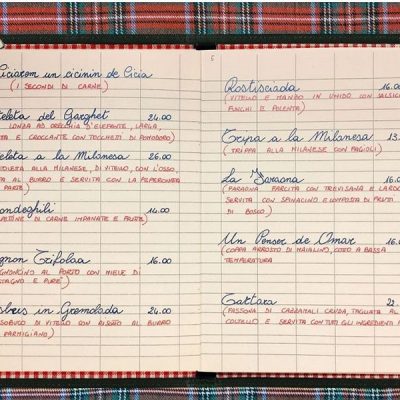 Ciciarem un cicinin de Cicia
(I SECONDI DI CARNE)
teleta del Garghet 24.00
LONZA AD ORECCHIA D'ELEFANTE, LARGA,
E CROCCANTE CON TOCCHETTI DI POMODORO)
eleta a la Milanesa 26.00
ALLA MILANESE, DI VITELLO, CON L'OSSO,
AL BURRO E SERVITA CON LA PEPERONATA
PARTE)
ondeghili 14.00
DI CARNE IMPANATE E FRITTE)
gnon Trifolaa 16.00
AL PORTO CON MIELE DI
E PURE')
sbus in Gremolada 24.00
OSSOBUCO DI VITELLO CON RISOTTO AL BURRO
PARMIGIANO)
Rostisciada 16.00
(VITELLO E MANZO IN UMIDO CON SALSICCIA
FUNGHI E POLENTA)
Tripa a la Milanesa 13.
(TRIPPA ALLA MILANESE CON FAGIOLI)
La Faraona 16.
(FARAONA FARCITA CON TREVISANA E LARDO
SERVITA CON SPINACINO E COMPOSTA DI FRUTTI
DI BOSCO)
Un Penser de Omar 16.
(COPPA ARROSTO DI MAIALINO, COTTO A BASSA
TEMPERATURA
Tartara 22.
CRUDA, TAGLIATA AL
COLTELLO E SERVITA CON TUTTI GLI INGREDIENTI A